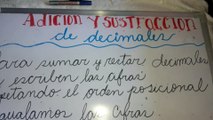 ADICIÓN Y SUSTRACCIÓN
de decimales
Para sumar y restar decimales
escriben las cifras
petando el orden posicional
igualamos las cifras